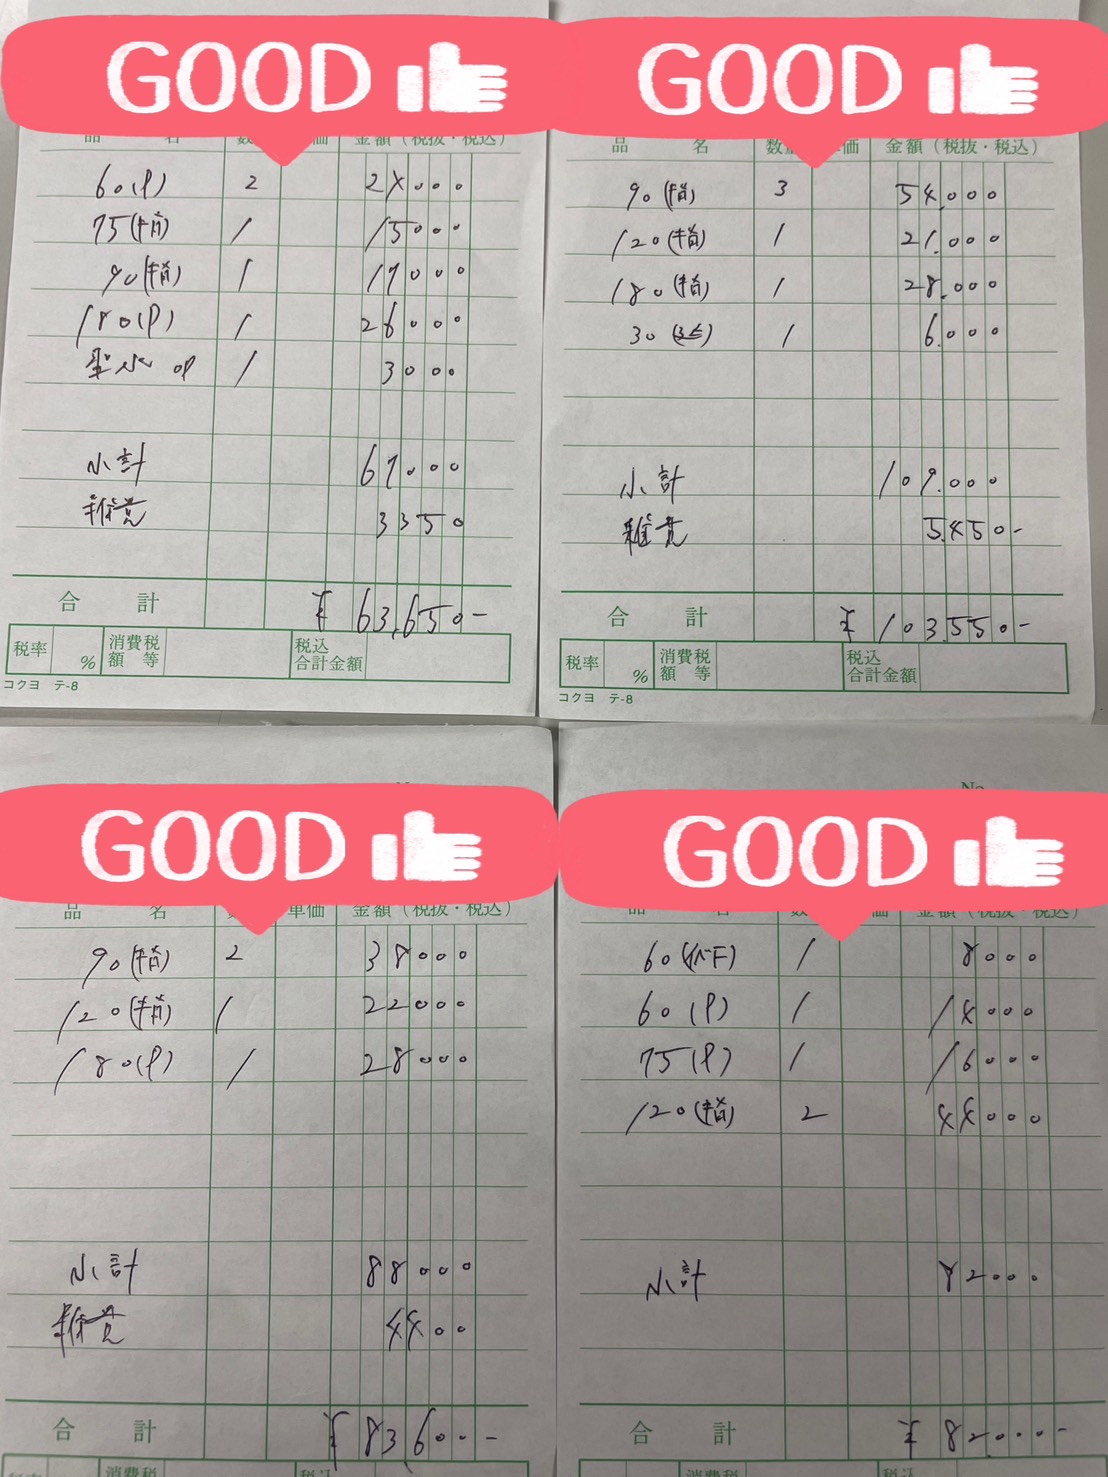 GOOD
品 名 単価 金額（税抜・税込）
60(P) 2 24000
75(指) 1 15000
90(指) 1 19000
180(P) 1 26000
OP 1 3000
小計 67000
雑費 3350
合 計 ¥63,650-
税率 % 消費税額等 税込合計金額
コクヨ テ-8
GOOD
品 名 数量 単価 金額（税抜・税込）
90(指) 3 54,000
120(指) 1 21,000
180(指) 1 28,000
30 1 6,000
小計 109,000
雑費 5,450-
合 計 ¥103,550-
税率 % 消費税額等 税込合計金額
コクヨ テ-8
GOOD
品 名 単価 金額（税抜・税込）
90(指) 2 38000
120(指) 1 22000
180(P) 1 28000
小計 88000
雑費 4400
合 計 ¥83,600-
税率 消費税 税込
No
GOOD
品 名 数 価 金額（税抜・税込）
60 1 8000
60(P) 1 14000
75(P) 1 16000
120(指) 2 44000
小計 82000
合 計 ¥82,000-
消費税 税込